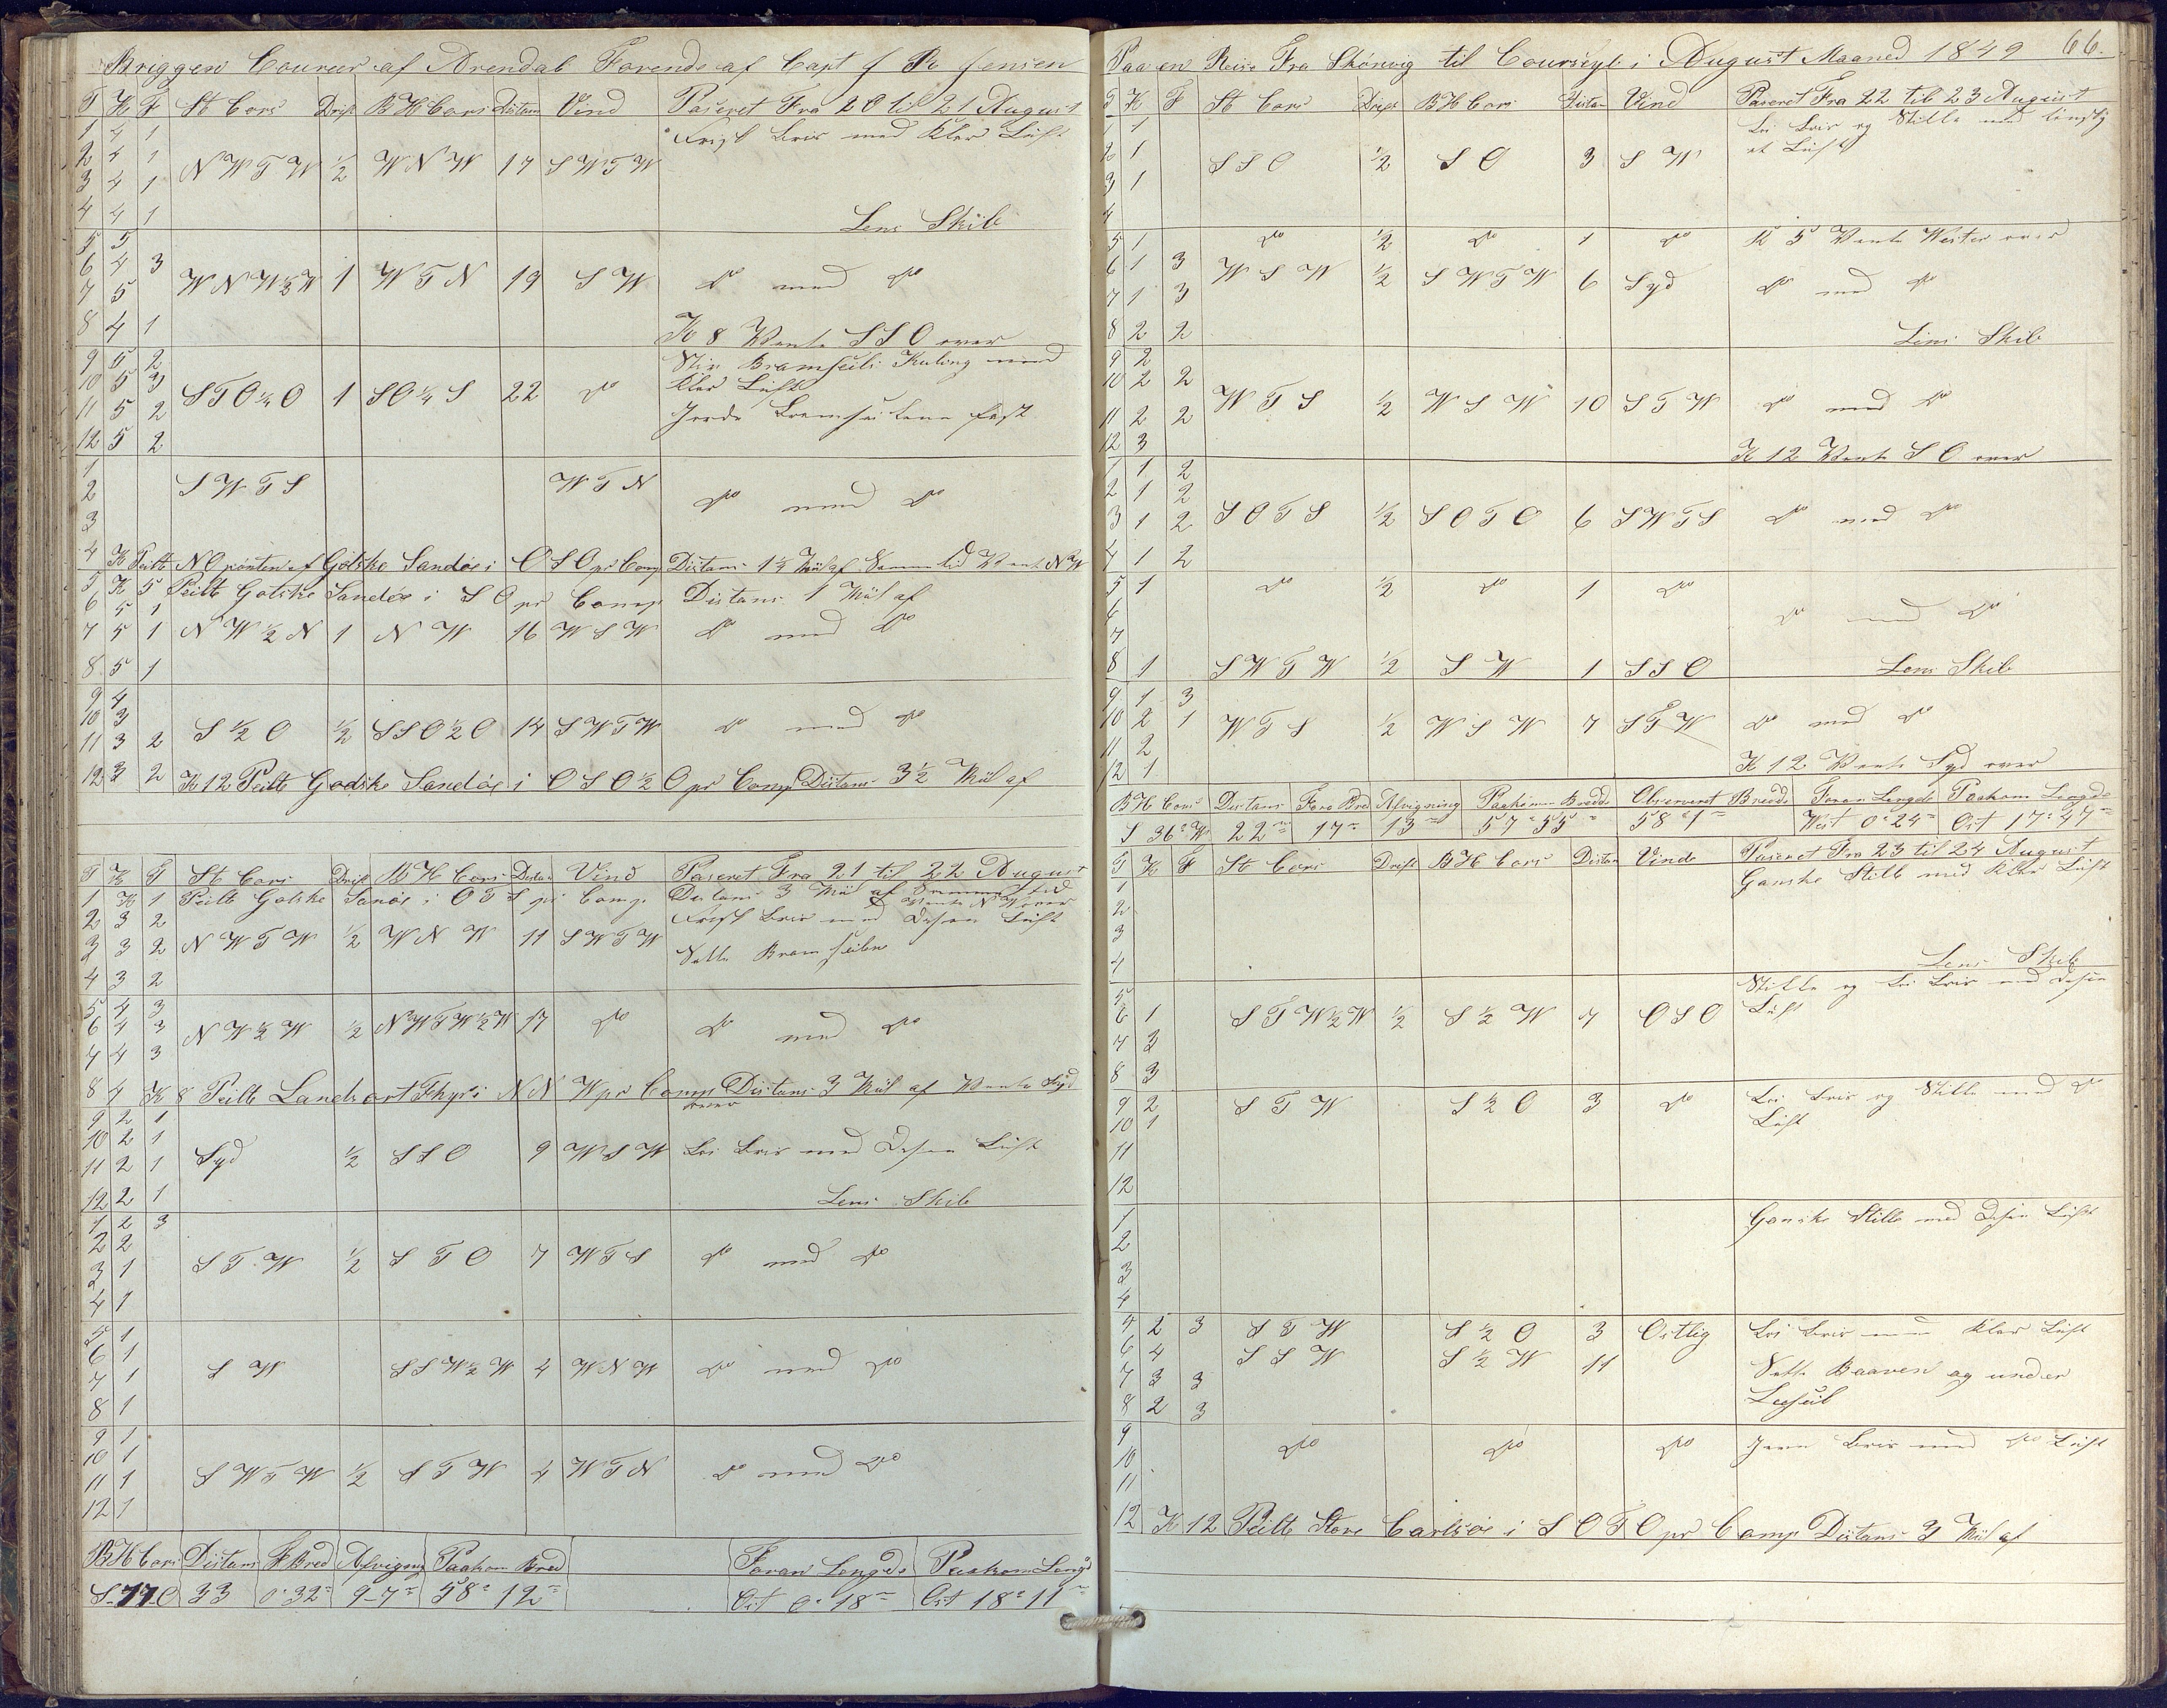 Briggen Coureer af Arendal Førende af Capt J Ro Jensen
T K F St Cors Drift B H Cors Distans Vind Paseret Fra 20 til 21 August
1 4 1 Frisk Bris med Klar Luft
2 4 1
3 4 1 N W T W ½ W N W 17 S W T W
4 4 1 Lens Skib
5 5
6 4 3 W N W ½ W 1 W T N 19 S W do med do
7 5
8 4 1 K 8 Vente S S O over
9 5 2 Stiv Bramseils Kuling med
10 5 3 S T O ¼ O 1 S O ¼ S 22 do klar Luft
11 5 2 Jorde Bramseilene fast
12 5 2
1
2 S W T S W T N do med do
3
4 K Peilt N O pönten af Gotske Sandøe i O S O pr Comp Distans 1½ Miil af Samme tid Vent N W
5 K 5 Peilt Gotske Sandøe i S O pr Comp Distans 1 Miil af
6 5 1
7 5 1 N W ½ N 1 N W 16 W S W do med do
8 5 1
9 4
10 3
11 3 2 S ½ O ½ S S O ½ O 14 S W T W do med do
12 3 2 K 12 Peilt Godske Sandøe i O S O ½ O pr Comp Distans 3½ Miil af
T K F St Cors Drift B H Cors Distan Vind Paseret Fra 21 til 22 August
1 K 1 Peilt Gotske Sanøe i O T S pr Comp. Distans 3 Miil af Samme tid
Vente N W over
2 3 2 Frisk Bris med Disen Luft
3 3 2 N W T W ½ W N W 11 S W T W
Satte Bramseilene
4 3 2
5 4 3
6 4 3 N W ½ W ½ N W T W ½ W 17 do do med do
7 4 3
8 4 K 8 Peilt Landsort Fhyr i N N W pr Comp Distans 3 Miil af Vente Syd
over
9 2 1
10 2 1
11 2 1 Syd ½ S S O 9 W S W Lri Bris med Disen Luft
12 2 1 Lens Skib
1 2 3
2 2
3 1 S T W ½ S T O 7 W T S do med do
4 1
5 1
6 1
7 1 S W S S W ½ W 4 W N W do med do
8 1
9 1
10 1
11 1 S W T W ½ S T W 4 W T N do med do
12 1
B H Cors Distans F Bred Afvigng Paakom Bred Foran Lengde Paakom Lengd
S 17 O 33 0° 32 9-7 58° 12 Ost 0° 18 Ost 18° 11
Paa en Reise Fra Skönvig til Courseyl i August Maaned 1849 66.
T K F St Cors Drift B H Cors Distan Vind Paseret Fra 22 til 23 August
1 1 Lri Bris og Stille med
2 1 S S O ½ S O 3 S W Luft
3 1
4
5 1 do ½ do 1 do K 5 Vente Wester over
6 1 3 W S W ½ S W T W 6 Syd do med do
7 1 3
8 2 2 Lens Skib
9 2
10 2 2
11 2 2 W T S ½ W S W 10 S T W do med do
12 3 K 12 Vente S O over
1 1 2
2 1 2
3 1 2 S O T S ½ S O T O 6 S W T S do med do
4 1 2
5 1 do ½ do 1 do
6 do med do
7
8 1 S W T W ½ S W 1 S S O Lens Skib
9 1 3
10 2 1 W T S ½ W S W 7 S T W do med do
11 2
12 1 K 12 Vente Syd over
B H Cors Distans Fora Bred Afvigning Paakomn Bredde Observeret Bredde Foran Lengde Paakom Lengde
S 36° W 22 17 13 57° 55 58° 1 West 0° 24 Ost 17° 47
T K F St Cors Drift B H Cors Distan Vinde Paseret Fra 23 til 24 August
1 Ganske Stille med Klar Luft
2
3
4 Lens Skib
5 Stille og Lri Bris med Disen
6 1 S T W ½ W ½ S ½ W 7 O S O Luft
7 3
8 3
9 2 S T W S ½ O 3 do Lri Bris og Stille med do
10 1 Luft
11
12
1 Ganske Stille med Disen Luft
2
3
4
5 2 3 S T W S ½ O 3 Ostlig Lri Bris med Klar Luft
6 4 S S W S ½ W 11
7 3 3 Satte Baaven og under
8 2 3 Leeseil
9 do do do Jevn Bris med do Luft
10
11
12 K 12 Peilt Store Carlsøe i S O T O pr Comp Distans 3 Miil af